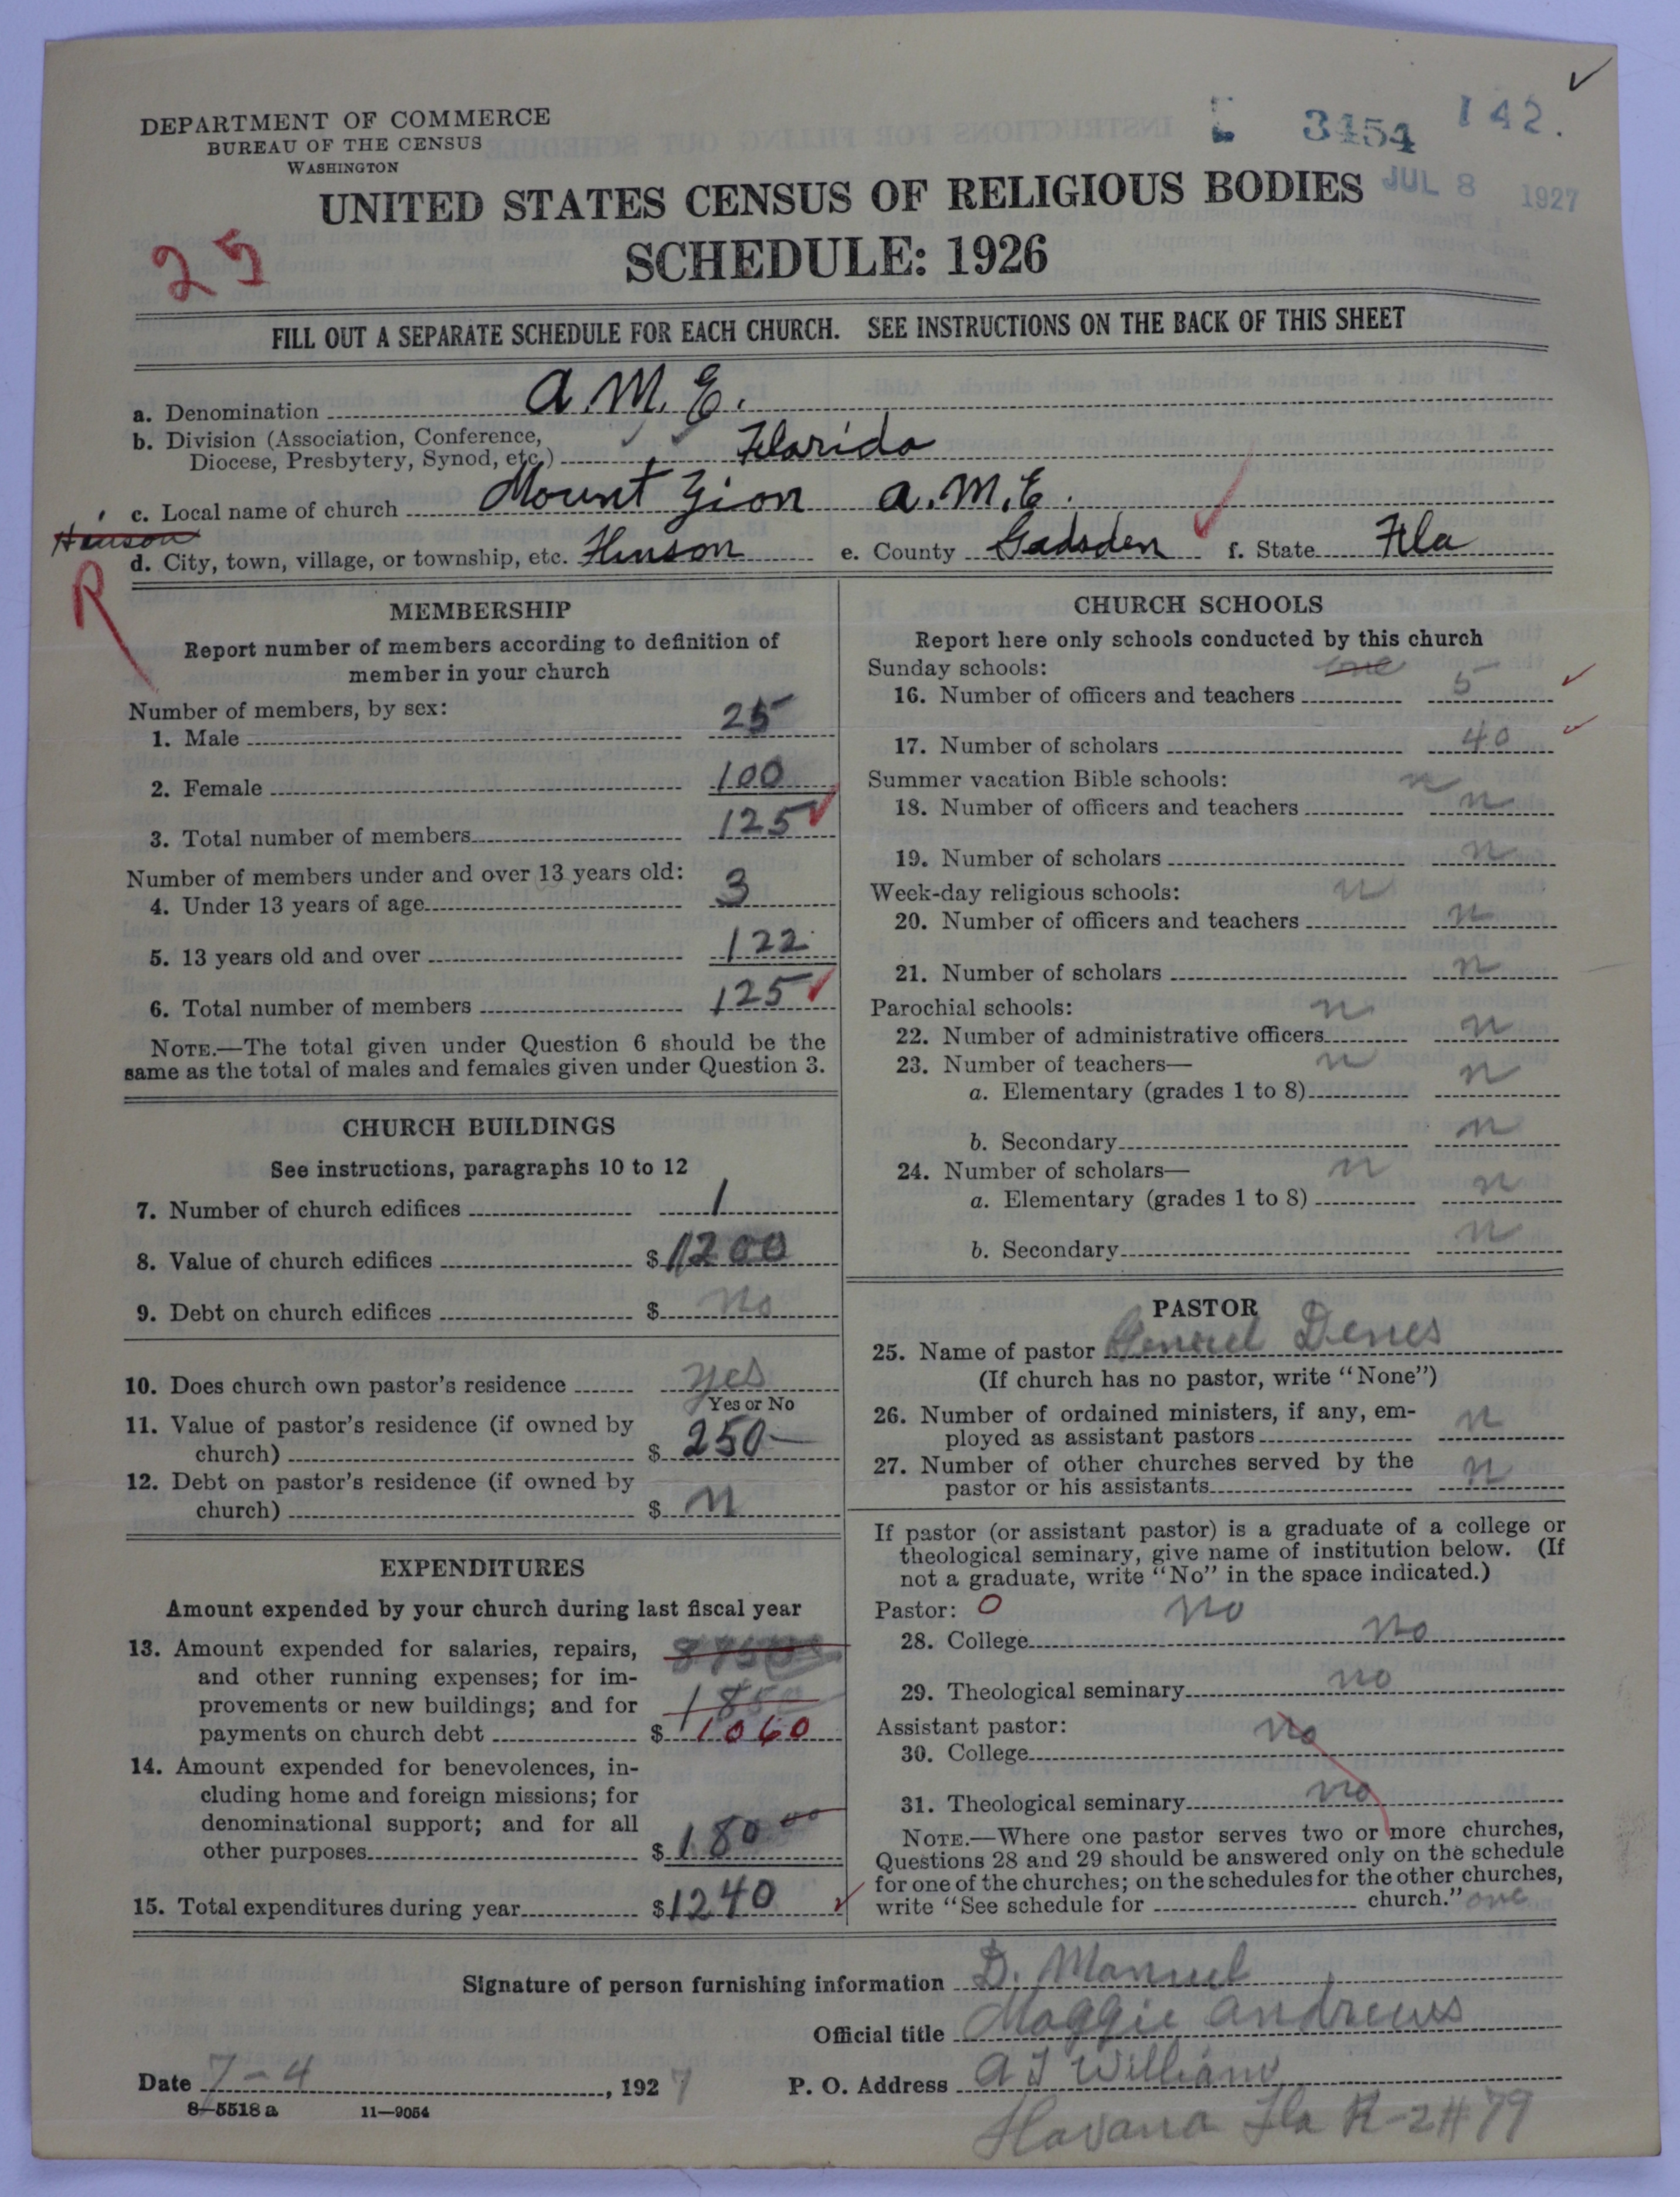 DEPARTMENT OF COMMERCE
BUREAU OF THE CENSUS
WASHINGTON
3454 142.
JUL 8 1927
UNITED STATES CENSUS OF RELIGIOUS BODIES
SCHEDULE: 1926
25
FILL OUT A SEPARATE SCHEDULE FOR EACH CHURCH. SEE INSTRUCTIONS ON THE BACK OF THIS SHEET
a. Denomination A.M.E.
b. Division (Association, Conference,
Diocese, Presbytery, Synod, etc.) Florida
c. Local name of church Mount Zion A.M.E.
Hinson
d. City, town, village, or township, etc. Hinson e. County Gadsden f. State Fla
R
MEMBERSHIP
Report number of members according to definition of
member in your church
Number of members, by sex:
1. Male 25
2. Female 100
3. Total number of members 125
Number of members under and over 13 years old:
4. Under 13 years of age 3
5. 13 years old and over 122
6. Total number of members 125
NOTE.—The total given under Question 6 should be the
same as the total of males and females given under Question 3.
CHURCH BUILDINGS
See instructions, paragraphs 10 to 12
7. Number of church edifices 1
8. Value of church edifices $1200
9. Debt on church edifices $ No
10. Does church own pastor's residence yes
Yes or No
11. Value of pastor's residence (if owned by
church) $ 250
12. Debt on pastor's residence (if owned by
church) $ n
EXPENDITURES
Amount expended by your church during last fiscal year
13. Amount expended for salaries, repairs,
and other running expenses; for im-
provements or new buildings; and for
payments on church debt $ 1060
1850
14. Amount expended for benevolences, in-
cluding home and foreign missions; for
denominational support; and for all
other purposes $180 00
15. Total expenditures during year $1240
CHURCH SCHOOLS
Report here only schools conducted by this church
Sunday schools: one
16. Number of officers and teachers 5
17. Number of scholars 40
Summer vacation Bible schools: n
18. Number of officers and teachers n
19. Number of scholars n
Week-day religious schools: n
20. Number of officers and teachers n
21. Number of scholars n
Parochial schools: n
22. Number of administrative officers n
23. Number of teachers— n
a. Elementary (grades 1 to 8) n
b. Secondary n
24. Number of scholars— n
a. Elementary (grades 1 to 8) n
b. Secondary n
PASTOR
25. Name of pastor
(If church has no pastor, write "None")
26. Number of ordained ministers, if any, em-
ployed as assistant pastors n
27. Number of other churches served by the
pastor or his assistants n
If pastor (or assistant pastor) is a graduate of a college or
theological seminary, give name of institution below. (If
not a graduate, write "No" in the space indicated.)
Pastor: O no
28. College no
29. Theological seminary no
Assistant pastor: no
30. College
31. Theological seminary no
NOTE.—Where one pastor serves two or more churches,
Questions 28 and 29 should be answered only on the schedule
for one of the churches; on the schedules for the other churches,
write "See schedule for church." one
Signature of person furnishing information D. Manuel
Official title Maggie Andrews
Date 7-4, 1927 P. O. Address A J William
8-5518 a 11-9054
Havana Fla R-2 # 79